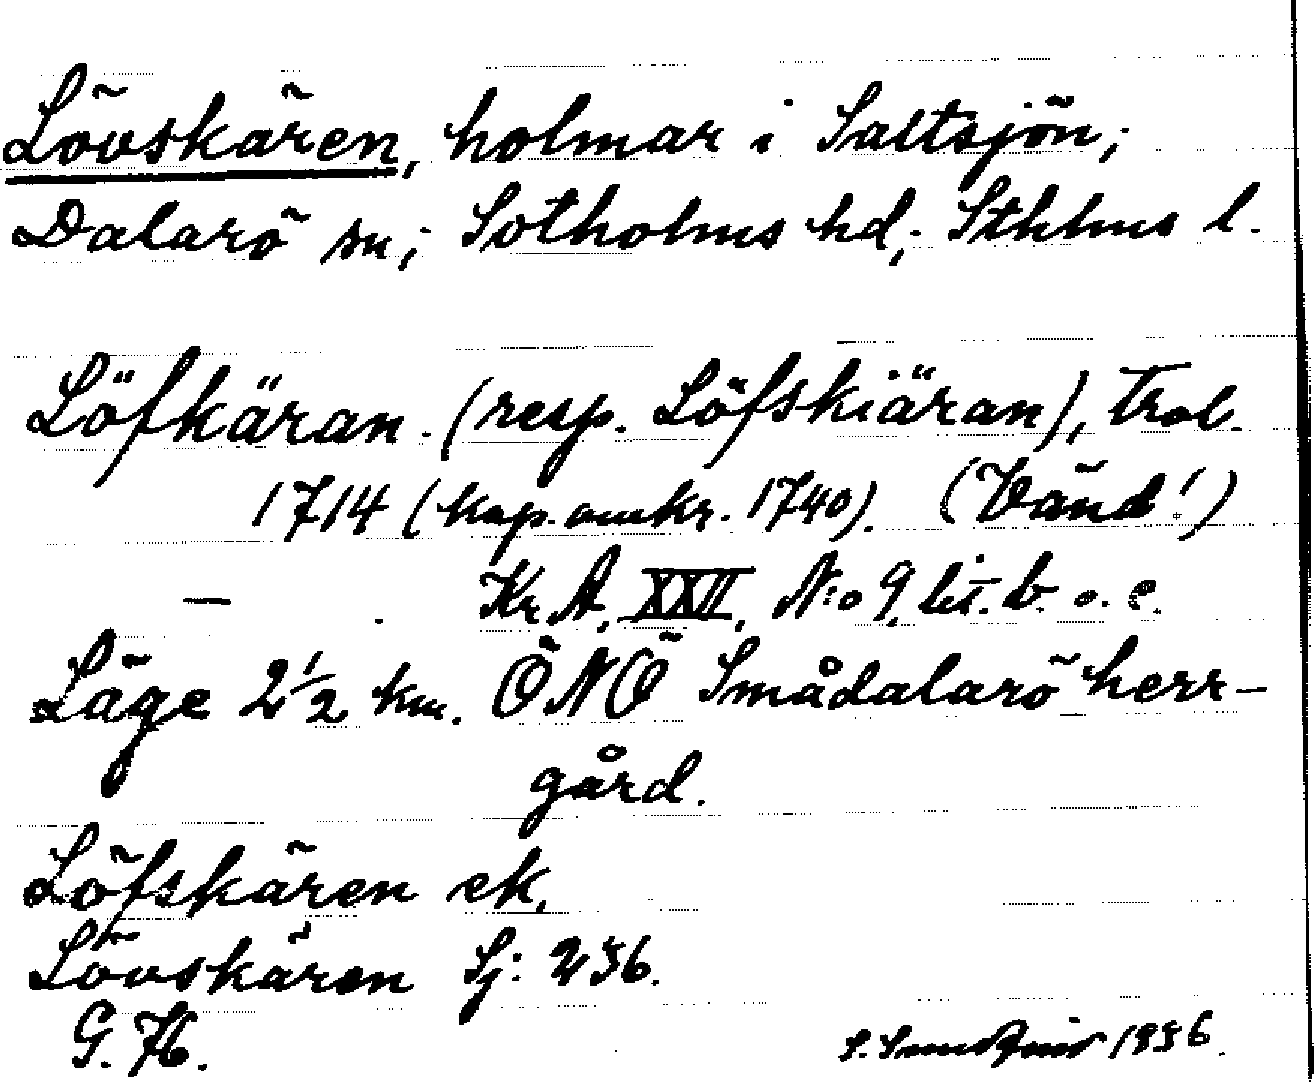 Lövskären, holmar i Saltsjön;
Dalarö sn; Sotholms hd; Sthlms l.
Löfkäran (resp. Löfskiäran), trol.
1714 (kop. omkr. 1740). (Vänd!)
— Kr. A. XXII, N:o 9, lit. b. o. e.
Läge 2 1/2 km. ÖNÖ Smådalarö herr-
gård.
Löfskären ek.
Lövskären Sj: 236.
G. 76.
1936.